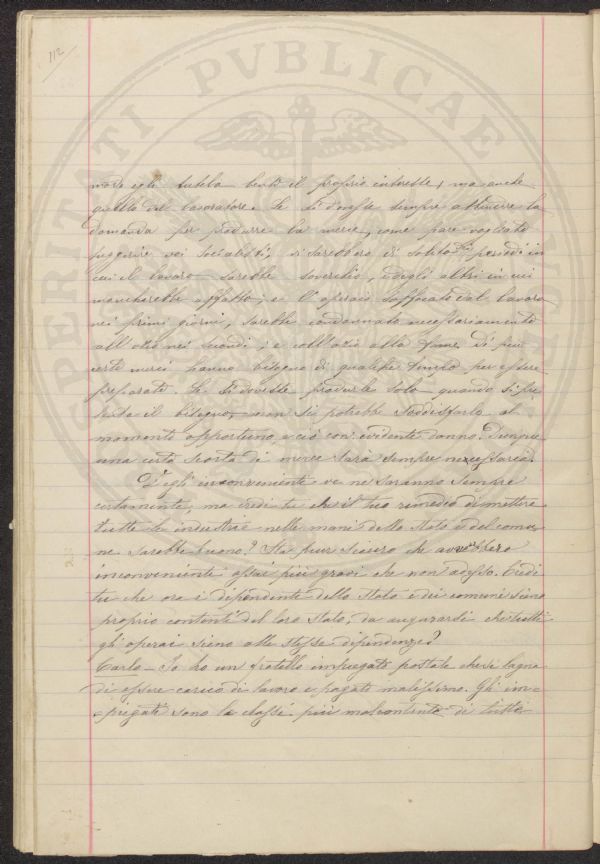 112
PROSPERITATI PVBLICAE
modo egli tutela bensì il proprio interesse, ma anche
quello del lavoratore. Se si dovesse sempre attendere la
domanda per produrre la merce, come pare vogliate
suggerire voi Socialisti, si sarebbero di solito dei periodi in
cui il lavoro sarebbe soverchio, e degli altri in cui
mancherebbe affatto; e l'operaio soffocato dal lavoro
nei primi giorni, sarebbe condannato necessariamente
all'ozio nei secondi; e coll'ozio alla fame. Di più
certe merci hanno bisogno di qualche tempo per essere
preparate. Se si dovesse produrle solo quando si pre
senta il bisogno, non si potrebbe soddisfarlo al
momento opportuno, e ciò con evidente danno. Dunque
una certa scorta di merce sarà sempre necessaria.
Degli inconvenienti ve ne saranno sempre
certamente, ma credi tu che il tuo rimedio di mettere
tutte le industrie nelle mani dello Stato e del comu
ne sarebbe buono? Sta pur sicuro che avverrebbero
inconvenienti assai più gravi che non adesso. Credi
tu che ora i dipendenti dello Stato e dei comuni sieno
proprio contenti del loro stato, da augurarsi che tutti
gli operai sieno alle stesse dipendenze?
Carlo - Io ho un fratello impiegato postale che si lagna
di essere carico di lavoro e pagato malissimo. Gli im=
=piegati sono la classe più malcontenta di tutte